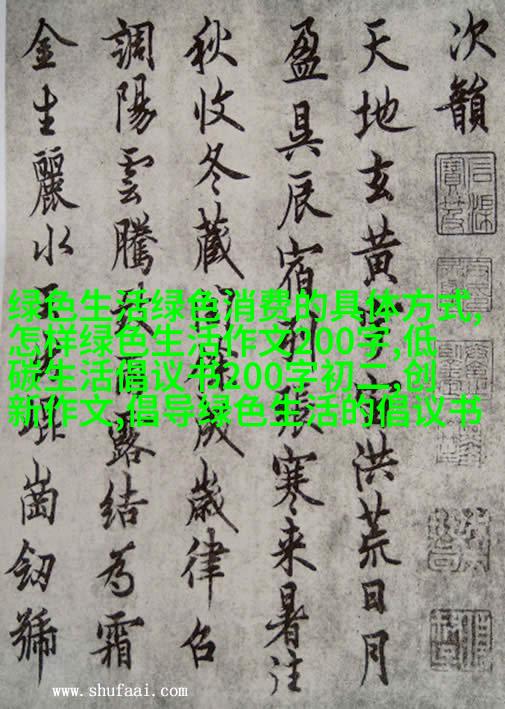 次韻
天地玄黄洪荒日月
盈昃辰宿列張寒来暑往
秋收冬藏歲律召
調陽雲騰致雨露結為霜
金生麗水崗劒號
绿色生活绿色消费的具体方式,
怎样绿色生活作文200字,低
碳生活倡议书200字初二,创
新作文,倡导绿色生活的倡议书
www.shufaai.com